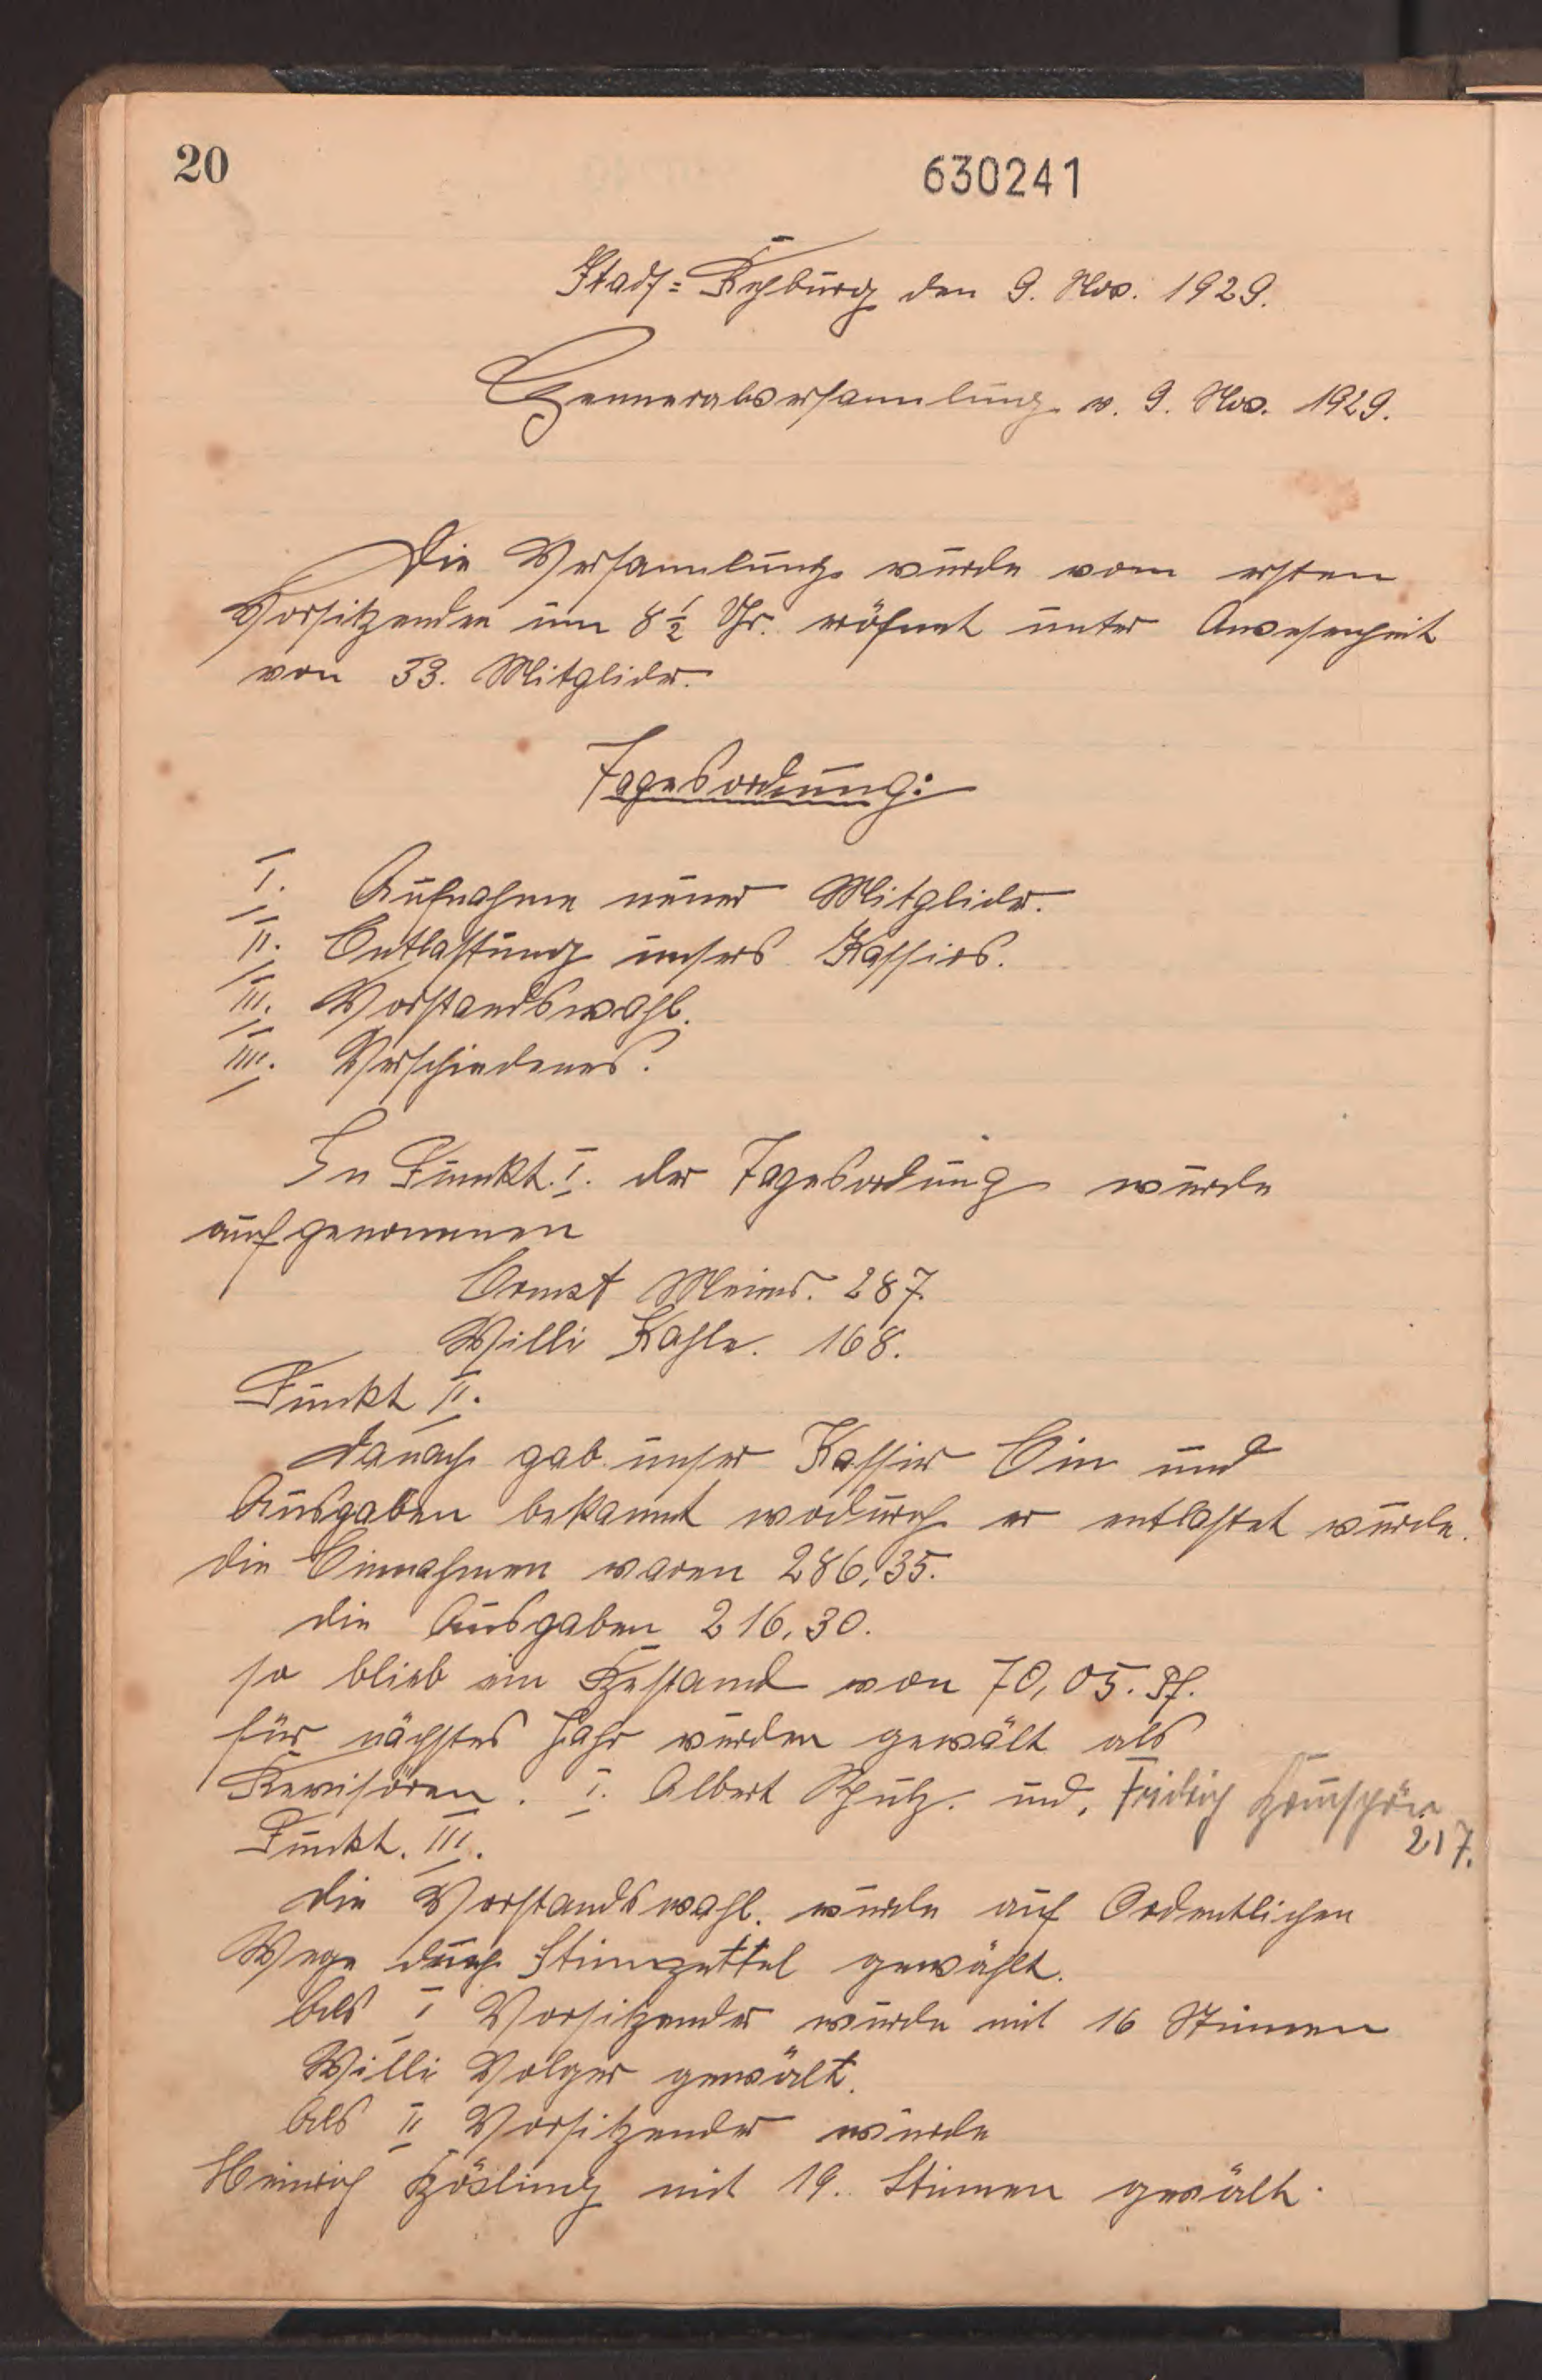 20
630241
Stadt=Rehburg den 9. Nov. 1929.
Genneralversammlung v. 9. Nov. 1929.
Die Versammlung wurde vom ersten
Vorsitzenden um 8 1/2 Uhr. eröfnet unter Anwesenheit
von 33. Mitglider.
Tagesordnung:
I. Aufnahme neuer Mitglider.
II. Entlastung unsers Kassirs.
III. Vorstandswahl.
IIII. Verschiedenes.
In Punkt. I. der Tagesordung wurde
aufgenommen
Ernst Meier. 287.
Willi Kahle. 168.
Punkt II.
Danach gab unser Kassir Ein und
Ausgaben bekannt wodurch er entlastet wurde.
die Einnahmen waren 286,35.
die Ausgaben 216,30.
so blieb ein Bestand von 70,05. Pf.
für nächstes Jahr wurden gewält als
Revisoren. I. Albert Schulz. und. Fridrich
217.
Punkt. III.
die Vorstandswahl. wurde auf Ordentlichen
Wege durch Stimzettel gewählt.
Als I Vorsitzender wurde mit 16 Stimmen
Willi Volger gewält.
Als II Vorsitzender wurde
Heinrich Bösling mit 19. Stimmen gewält.